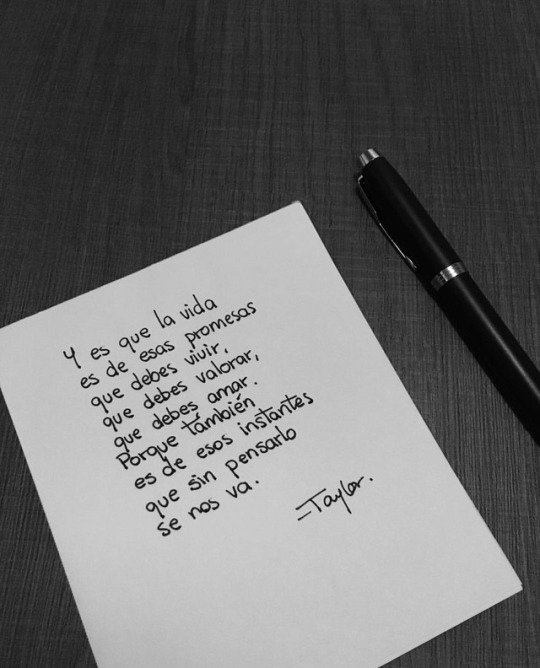 Y es que la vida
es de esas promesas
que debes vivir,
que debes valorar,
que debes amar.
Porque también
es de esos instantes
que sin pensarlo
se nos va.
-Taylor.